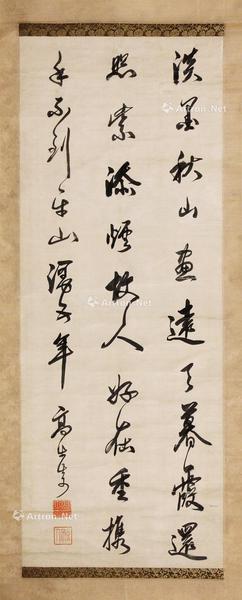 淡墨秋山畫遠天暮霞還
照紫添煙故人好在重攜
手不到平山漫五年 高士奇
Artron.Net